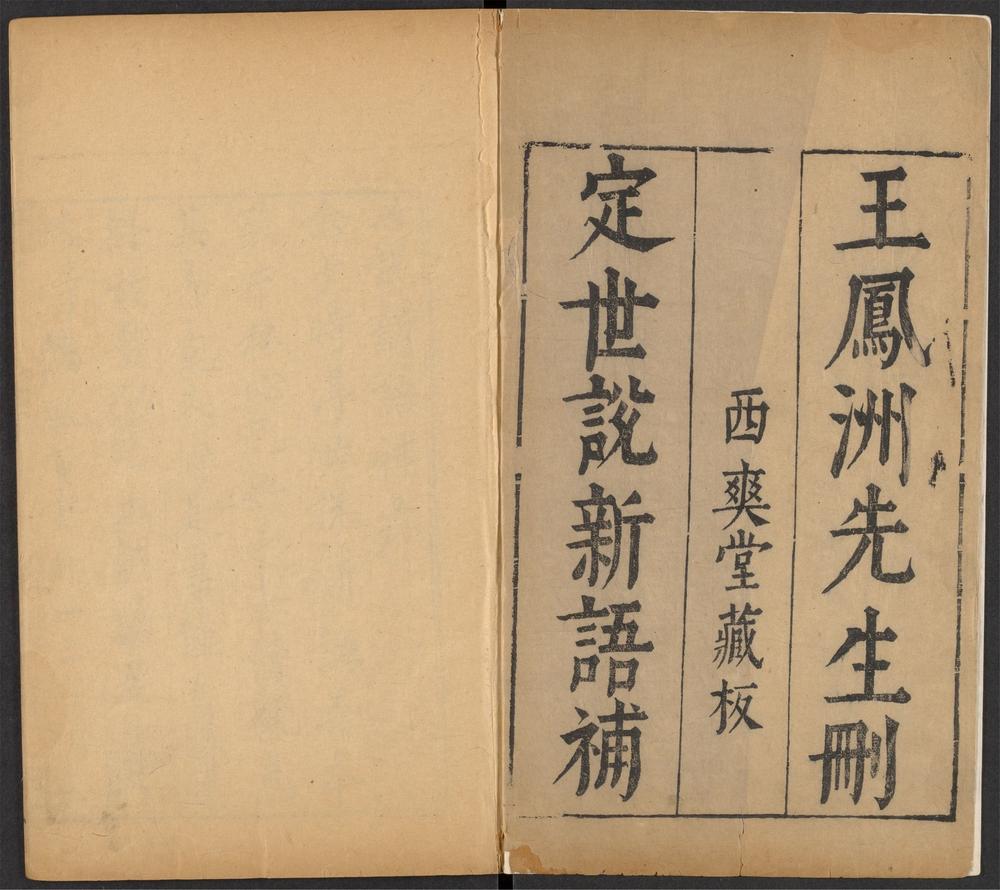 王鳳洲先生刪
西爽堂藏板
定世說新語補